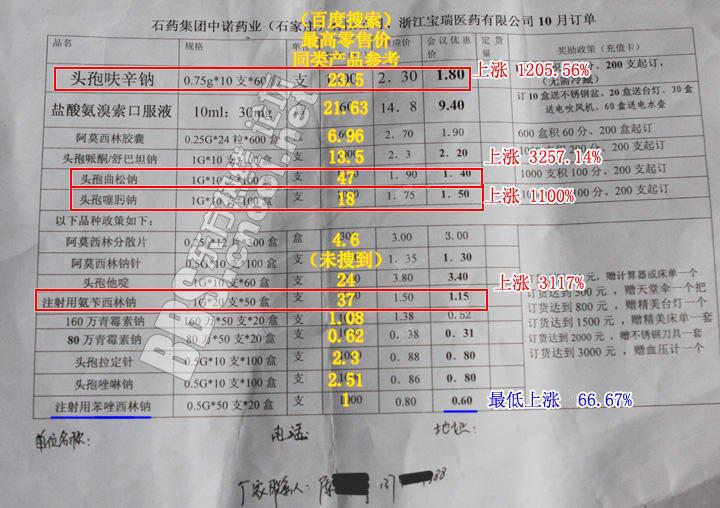 石药集团中诺药业（石家 浙江宝瑞医药有限公司 10 月订单
（百度搜索）
最高零售价
同类产品参考
品名 规格 应价 会议优惠价 定货量 奖励政策（充值卡）
头孢呋辛钠 0.75g*10 支*60 支 23.5 2. 30 1.80 上涨 1205.56% 200 支起订，（无需冷藏）
盐酸氨溴索口服液 10ml：30mg 21.63 14. 8 9.40 订 10 盒送不锈钢盆、20 盒送台灯、30 盒送电吹风机、60 盒送电水壶
阿莫西林胶囊 0.25G*24 粒*600 盒 6.96 2. 70 1.90 600 盒积 60 分、200 盒起订
头孢哌酮/舒巴坦钠 1G*10 支 支 13.5 2. 3 2. 20 上涨 3257.14% 200 支起订
头孢曲松钠 1G*10 支 支 47 1. 90 1. 40 1000 支积 100 分、200 支起订
头孢噻肟钠 1G*10 支*100 支 18 1. 75 1. 50 上涨 1100% 200 支起订
以下品种政策如下：
阿莫西林分散片 0.25G*12 片*300 盒 盒 4.6 3.00 3.00
阿莫西林钠针 0.5G*10 支*100 支 （未搜到） 1. 35 1. 30
头孢他啶 1G*10 支*60 支 24 3.80 3.40 上涨 3117% 元，赠计算器或床单一个
注射用氨苄西林钠 1G*20 支*50 盒 支 37 1.50 1.15 订货达到 500 元，赠天堂伞一个把
160 万青霉素钠 160 万*50 支*20 盒 支 1.08 1.38 0.52 订货达到 800 元，赠精美台灯一个
80 万青霉素钠 80 万*50 支*20 盒 支 0.62 0. 38 0. 31 订货达到 1500 元，赠精美床单一套
订货达到 2000 元，赠不锈钢刀具一套
头孢拉定针 0.5G*10 支*100 支 2.3 0. 88 0. 80 订货达到 3000 元，赠血压计一个
头孢唑啉钠 0.5G*10 支*100 支 2.51 0. 86 0. 80
注射用苯唑西林钠 0.5G*50 支*20 盒 支 1 0.80 0.60 最低上涨 66.67%
单位名称： 电话 地址：
厂家联系人：陈 137 88
BBS.cnool.net
东方热线论坛